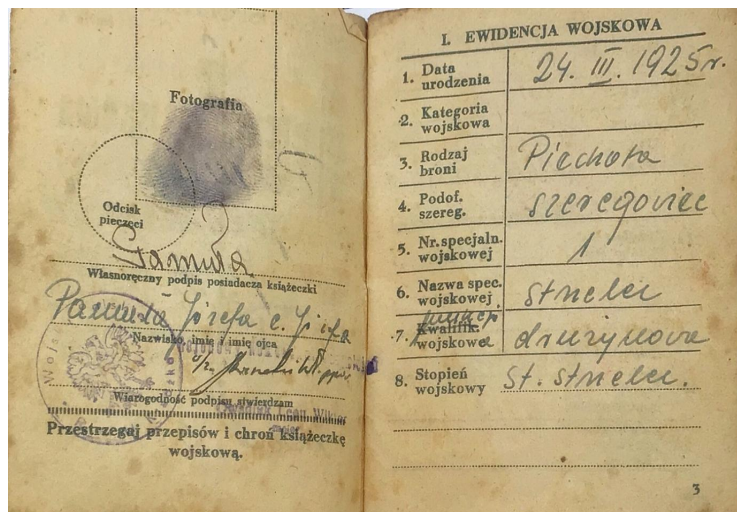 Fotografia
Odcisk
pieczęci
Własnoręczny podpis posiadacza książeczki
Józefa c. Józefa
Nazwisko, imię i imię ojca
Wiarogodność podpisu stwierdzam
Przestrzegaj przepisów i chroń książeczkę
wojskową.
I. EWIDENCJA WOJSKOWA
1. Data urodzenia 24. III. 1925 r.
2. Kategoria wojskowa
3. Rodzaj broni Piechota
4. Podof. szereg. szeregowiec
5. Nr. specjaln. wojskowej 1
6. Nazwa spec. wojskowej strzelec
7. Kwalifik. wojskowe drużynowa
8. Stopień wojskowy St. strzelec.
3